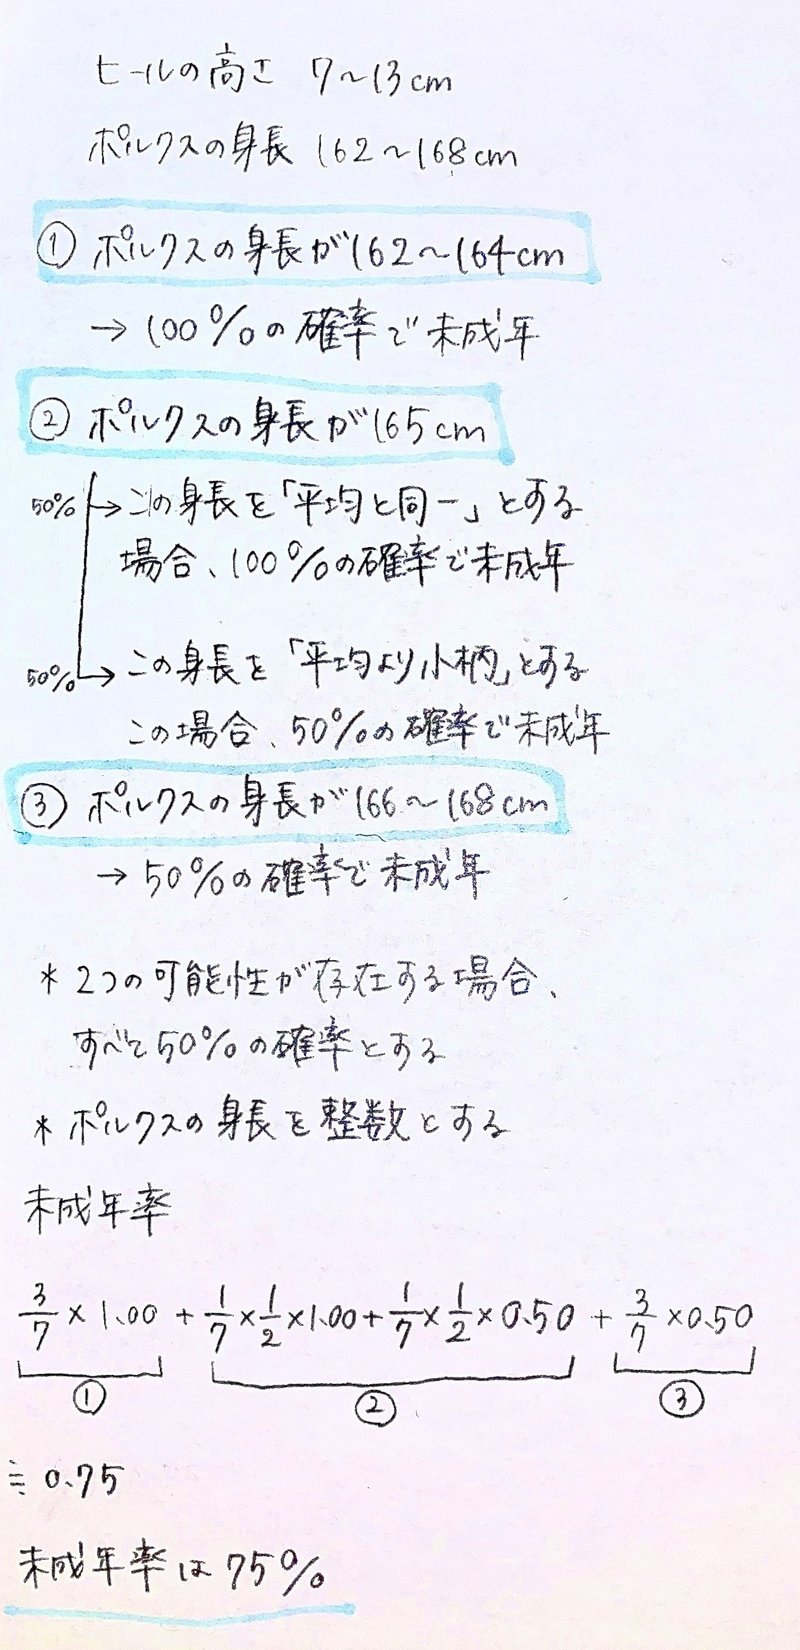 ヒールの高さ 7〜13cm
ポルクスの身長 162〜168cm
① ポルクスの身長が162〜164cm
→ 100%の確率で未成年
② ポルクスの身長が165cm
50% → この身長を「平均と同一」とする
場合、100%の確率で未成年
50% → この身長を「平均より小柄」とする
この場合、50%の確率で未成年
③ ポルクスの身長が166〜168cm
→ 50%の確率で未成年
* 2つの可能性が存在する場合、
すべて50%の確率とする
* ポルクスの身長を整数とする
未成年率
3/7 × 1.00 + 1/7 × 1/2 × 1.00 + 1/7 × 1/2 × 0.50 + 3/7 × 0.50
① ② ③
≒ 0.75
未成年率は75%